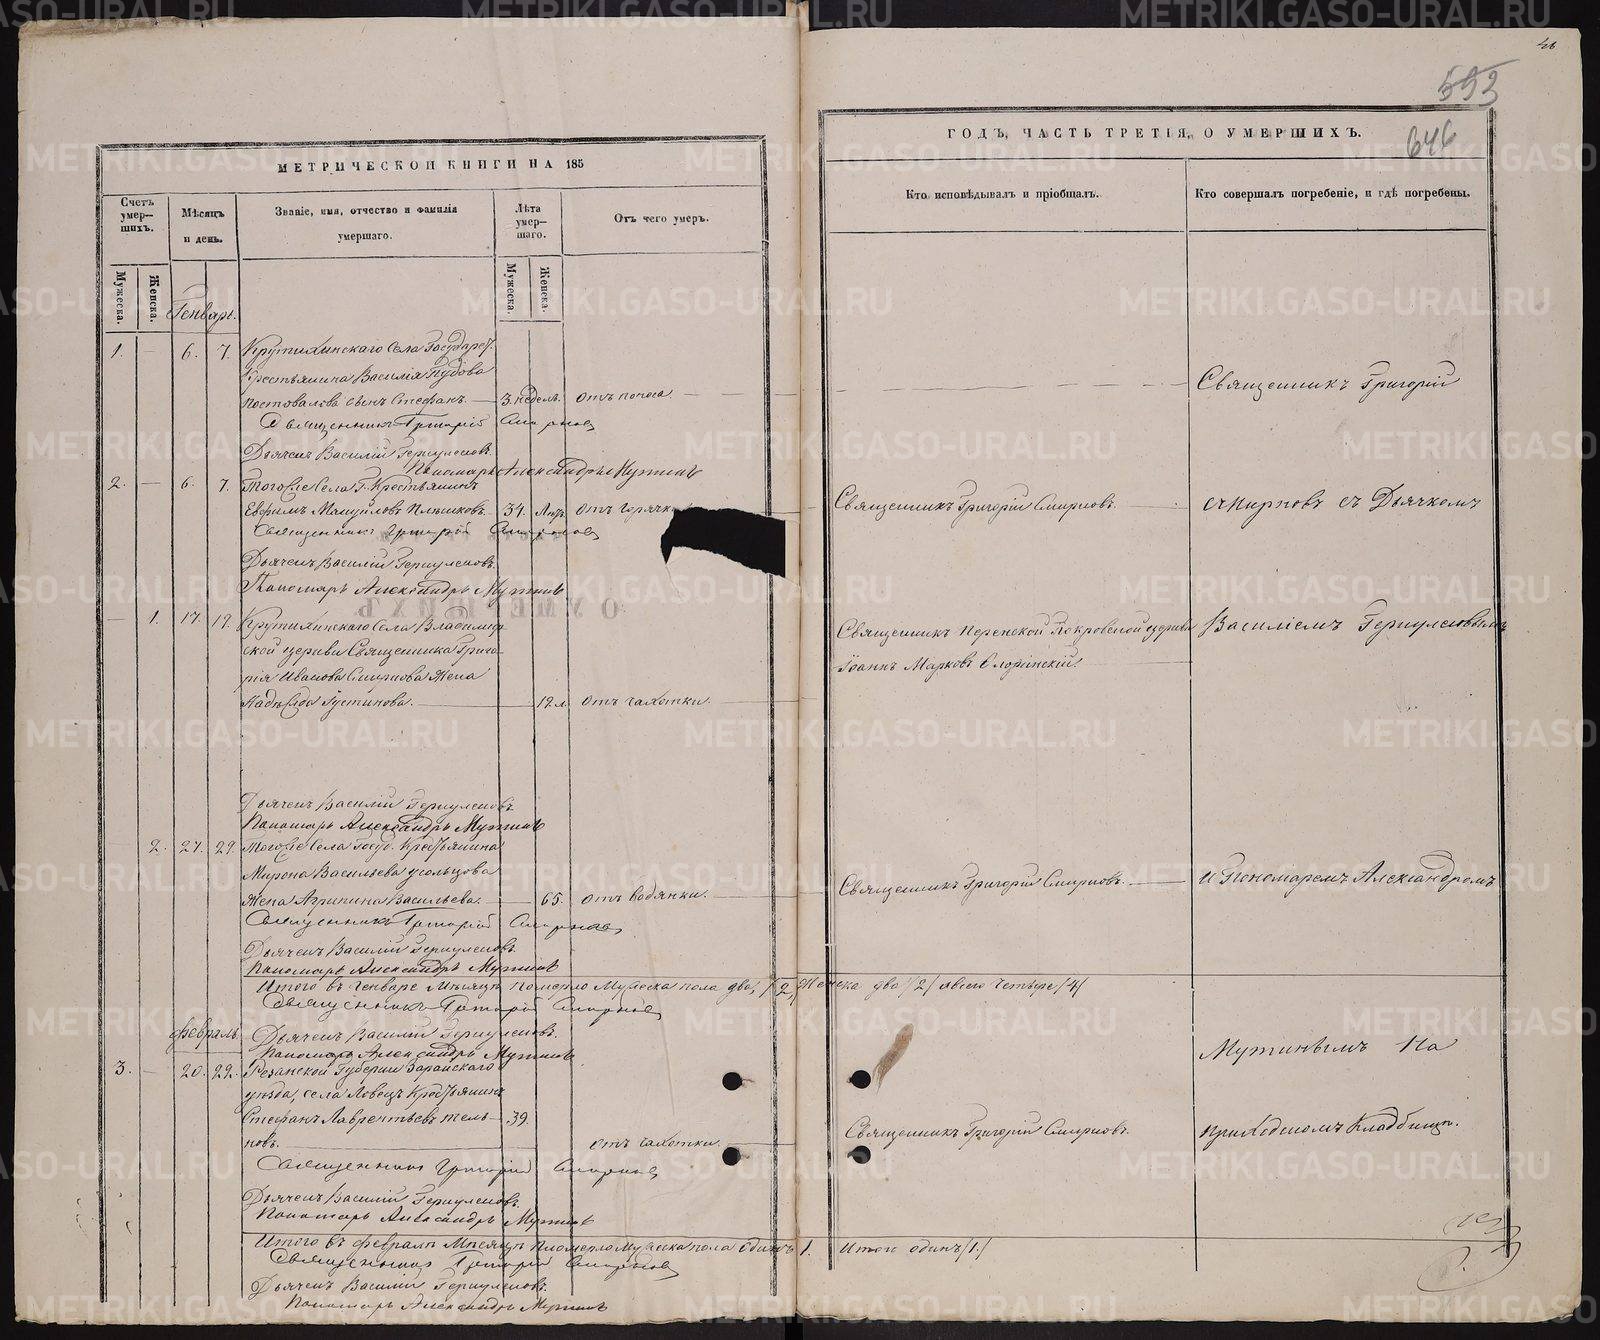 МЕТРИЧЕСКОЙ КНИГИ НА 185
Счетъ умер-шихъ.
Мужеска.
Женска.
Мѣсяцъ и день.
Званіе, имя, отчество и фамилія умершаго.
Лѣта умер-шаго.
Мужеска.
Женска.
Отъ чего умеръ.
Генварь.
1. — 6. 7. Крутихинскаго Села Государст.
Крестьянина Василія Пудова
Постовалова сынъ Стефанъ. — 3. недѣль. отъ поноса.
Священникъ Григорій Смирновъ
Дьячекъ Василій Геркулесовъ.
Пономарь Александръ Мутинъ
2. — 6. 7. Тогоже Села Г. Крестьянинъ
Евфимъ 34. Лѣтъ отъ горячк
Священникъ Григорій Смирновъ
Дьячекъ Василій Геркулесовъ.
Пономарь Александръ Мутинъ
— 1. 17. 19. Крутихинскаго Села Владимір
ской церкви Священника Григо
рія Иванова Смирнова Жена
Надежда Іустинова. — 19. л. отъ чахотки.
Дьячекъ Василій Геркулесовъ
Пономарь Александръ Мутинъ
2. 27. 29. Тогоже Села Госуд. Крестьянина
Мирона Васильева Усольцова
Жена Агрипина Васильева. — 65. отъ водянки.
Священникъ Григорій Смирновъ
Дьячекъ Василій Геркулесовъ.
Пономарь Александръ Мутинъ
Итого въ Генваре Мѣсяцѣ померло Мужеска пола два, /2,/ Женска два /2/ а всего четыре /4/
Священникъ Григорій Смирновъ
Февраль. Дьячекъ Василій Геркулесовъ.
Пономарь Александръ Мутинъ
3. — 20. 22. Резанской Губерніи Зарайскаго
уѣзда, села Ловецъ Крестьянинъ
Стефанъ Лаврентьевъ 39.
новъ. отъ чахотки.
Священникъ Григорій Смирновъ
Дьячекъ Василій Геркулесовъ.
Пономарь Александръ Мутинъ
Итого въ февралѣ Мѣсяцѣ померло Мужеска пола одинъ 1. Итого одинъ /1./
Священникъ Григорій Смирновъ
Дьячекъ Василій Геркулесовъ.
Пономарь Александръ Мутинъ
593
646
ГОДЪ, ЧАСТЬ ТРЕТІЯ, О УМЕРШИХЪ.
Кто исповѣдывалъ и пріобщалъ.
Кто совершалъ погребеніе, и гдѣ погребены.
Священникъ Григорій
Священникъ Григорій Смирновъ.
Смирновъ съ Дьячкомъ
Священникъ Покровской церкви
Іоаннъ Марковъ Флоринскій.
Василіемъ Геркулесовымъ
Священникъ Григорій Смирновъ.
и Пономаремъ Александромъ
Мутинымъ На
Священникъ Григорій Смирновъ.
приходскомъ Кладбищѣ.
METRIKI.GASO-URAL.RU